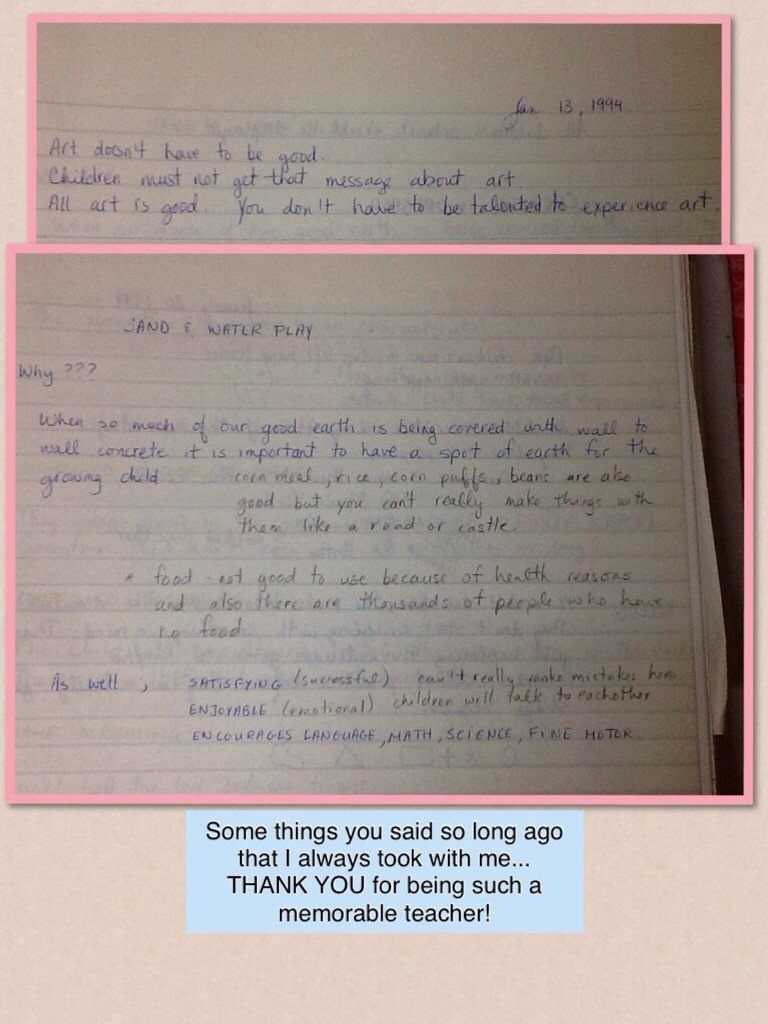 Jan 13, 1994
Art doesn't have to be good.
Children must not get that message about art.
All art is good. You don't have to be talented to experience art.
SAND & WATER PLAY
Why ???
When so much of our good earth is being covered with wall to
wall concrete it is important to have a spot of earth for the
growing child corn meal, rice, corn puffs, beans are also
good but you can't really make things with
them like a road or castle.
* food - not good to use because of health reasons
and also there are thousands of people who have
no food
As well, SATISFYING (successful) can't really make mistakes here
ENJOYABLE (emotional) children will talk to eachother
ENCOURAGES LANGUAGE, MATH, SCIENCE, FINE MOTOR.
Some things you said so long ago
that I always took with me...
THANK YOU for being such a
memorable teacher!